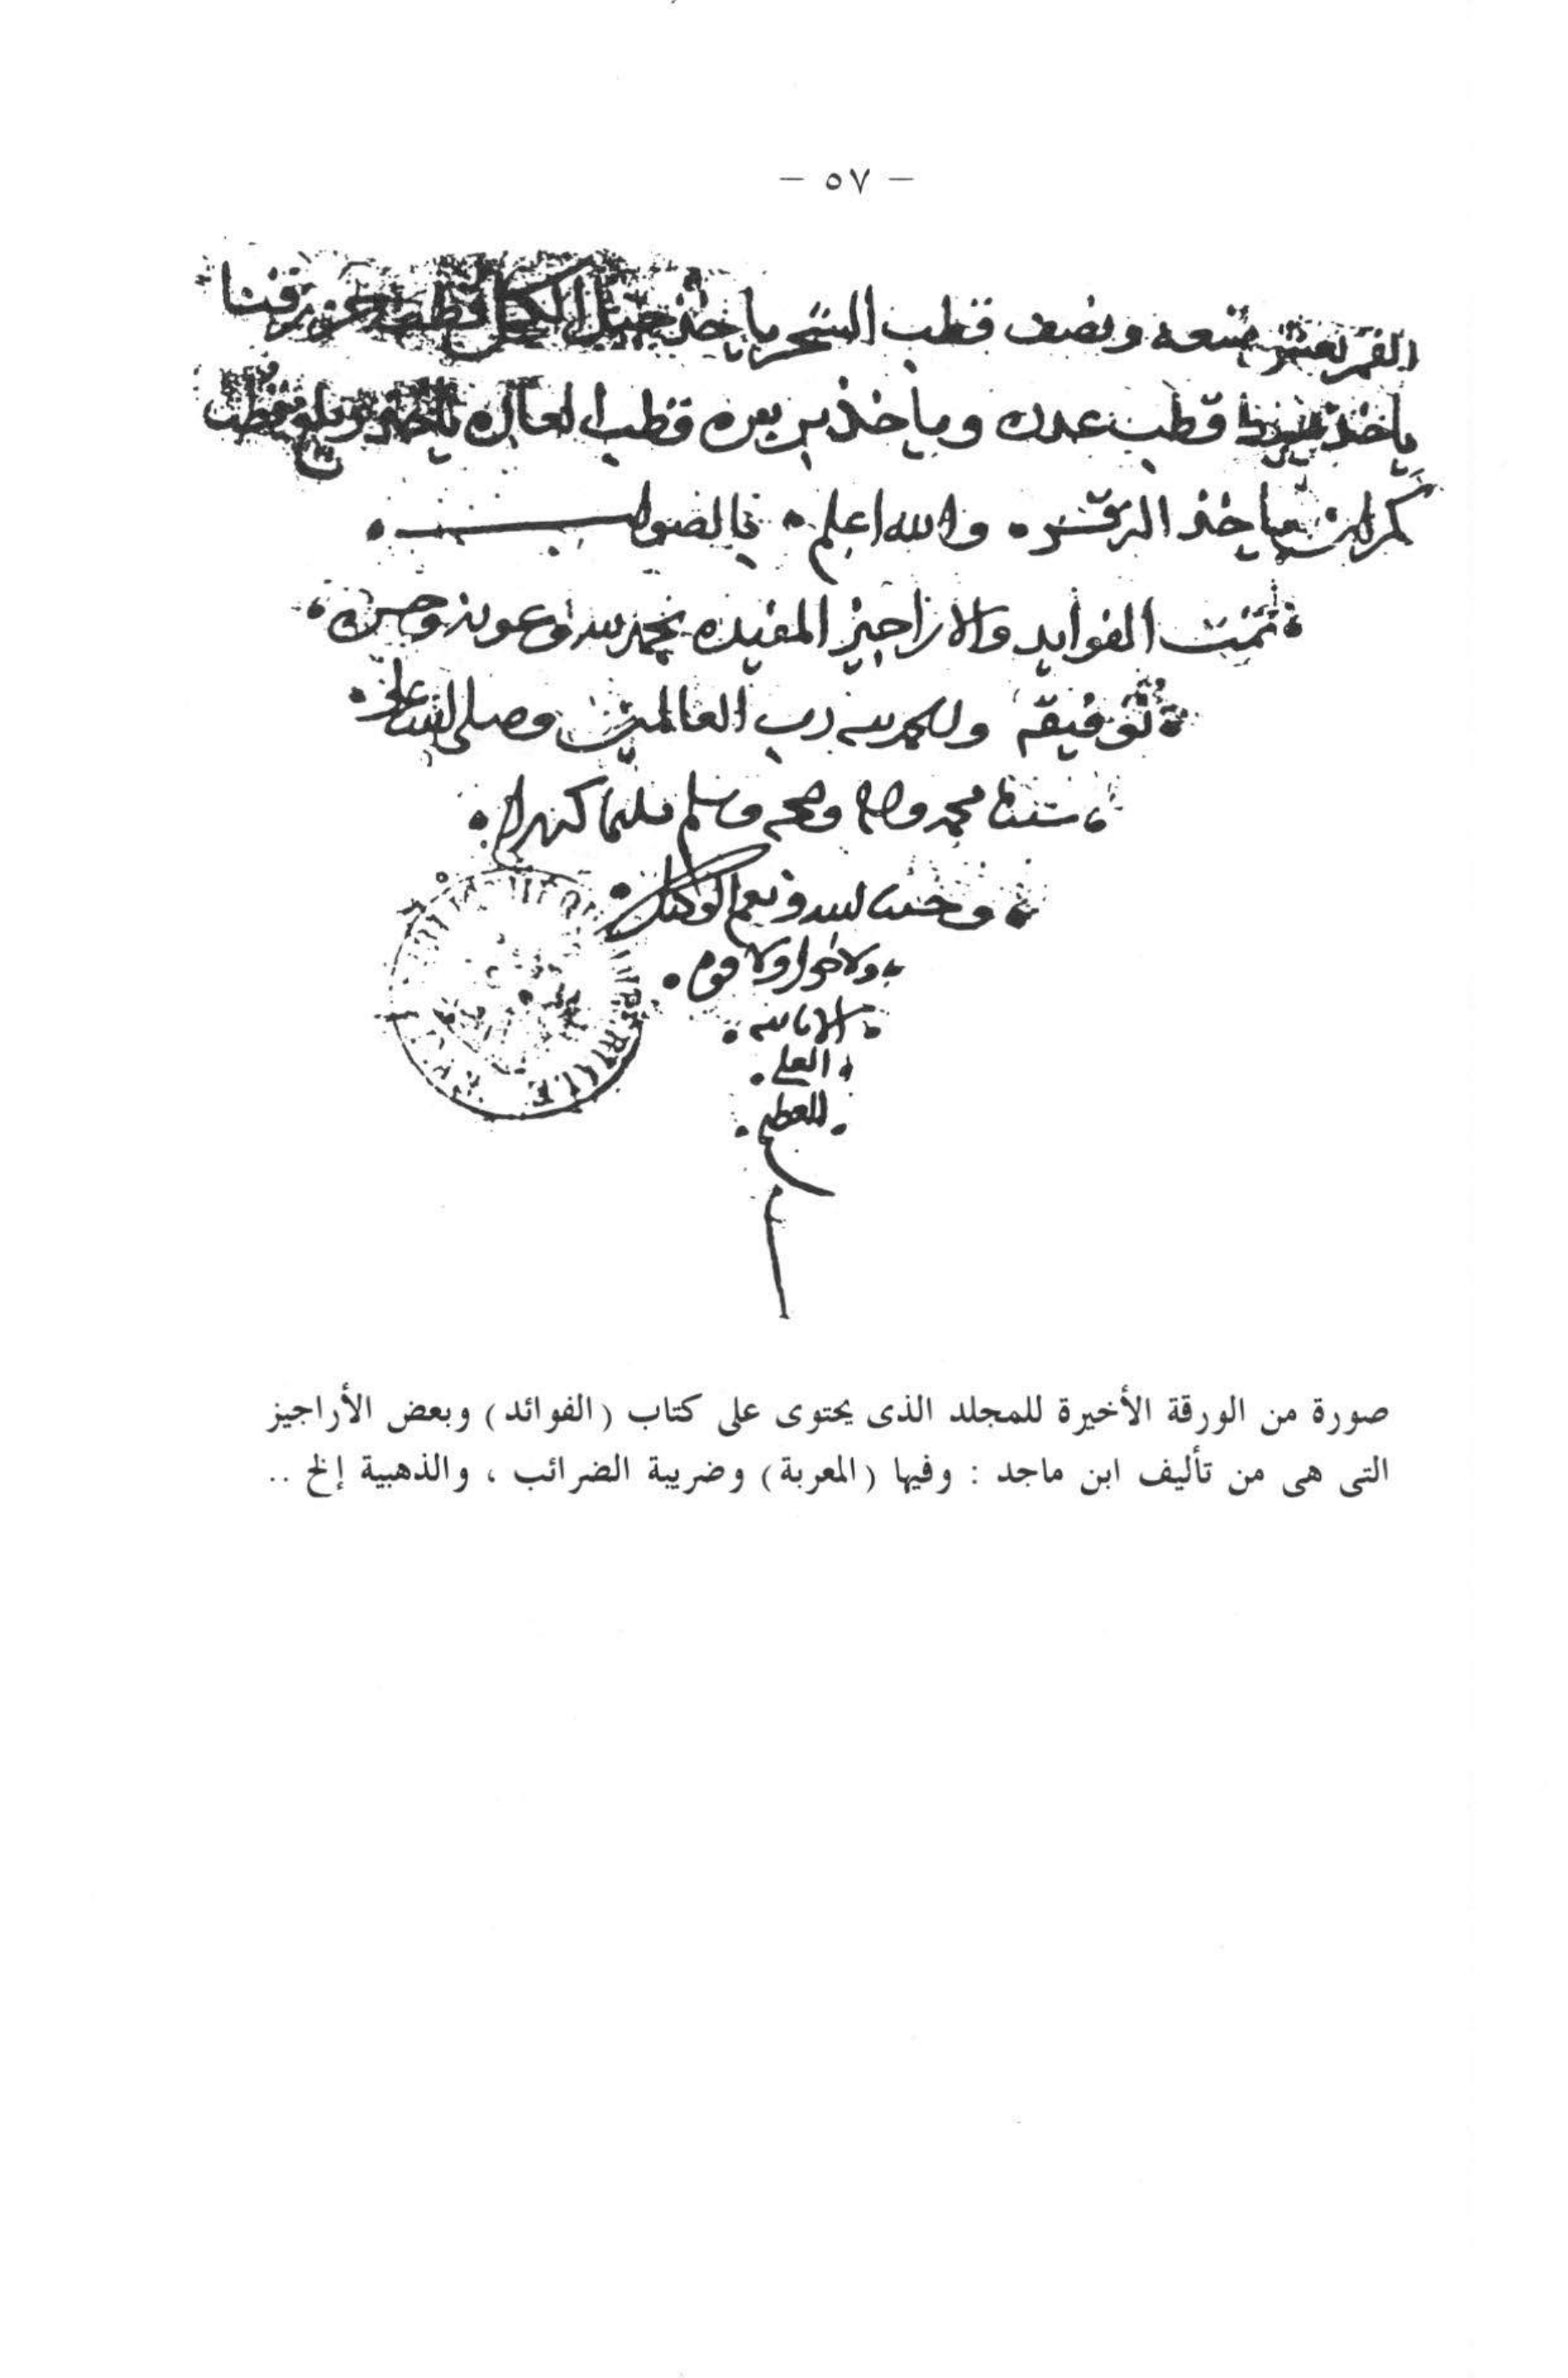 - ٥٧ -
ونصف قطب الشحر ياخذ جبل الكحل
ياخذ قطب عدن وياخذ بربره قطب العاره
كمران ياخذ الزقر والله اعلم بالصواب
تمت الفوايد والاراجيز المفيده بحمد الله وعونه وحسن
توفيقه والحمد لله رب العالمين وصلى الله على
سيدنا محمد واله وصحبه وسلم تسليما كثيرا
وحسبنا الله ونعم الوكيل
ولا حول ولا قوه
الا بالله
العلي
العظيم
صورة من الورقة الأخيرة للمجلد الذى يحتوى على كتاب (الفوائد) وبعض الأراجيز
التى هى من تأليف ابن ماجد : وفيها (المعربة) وضريبة الضرائب ، والذهبية إلخ ..